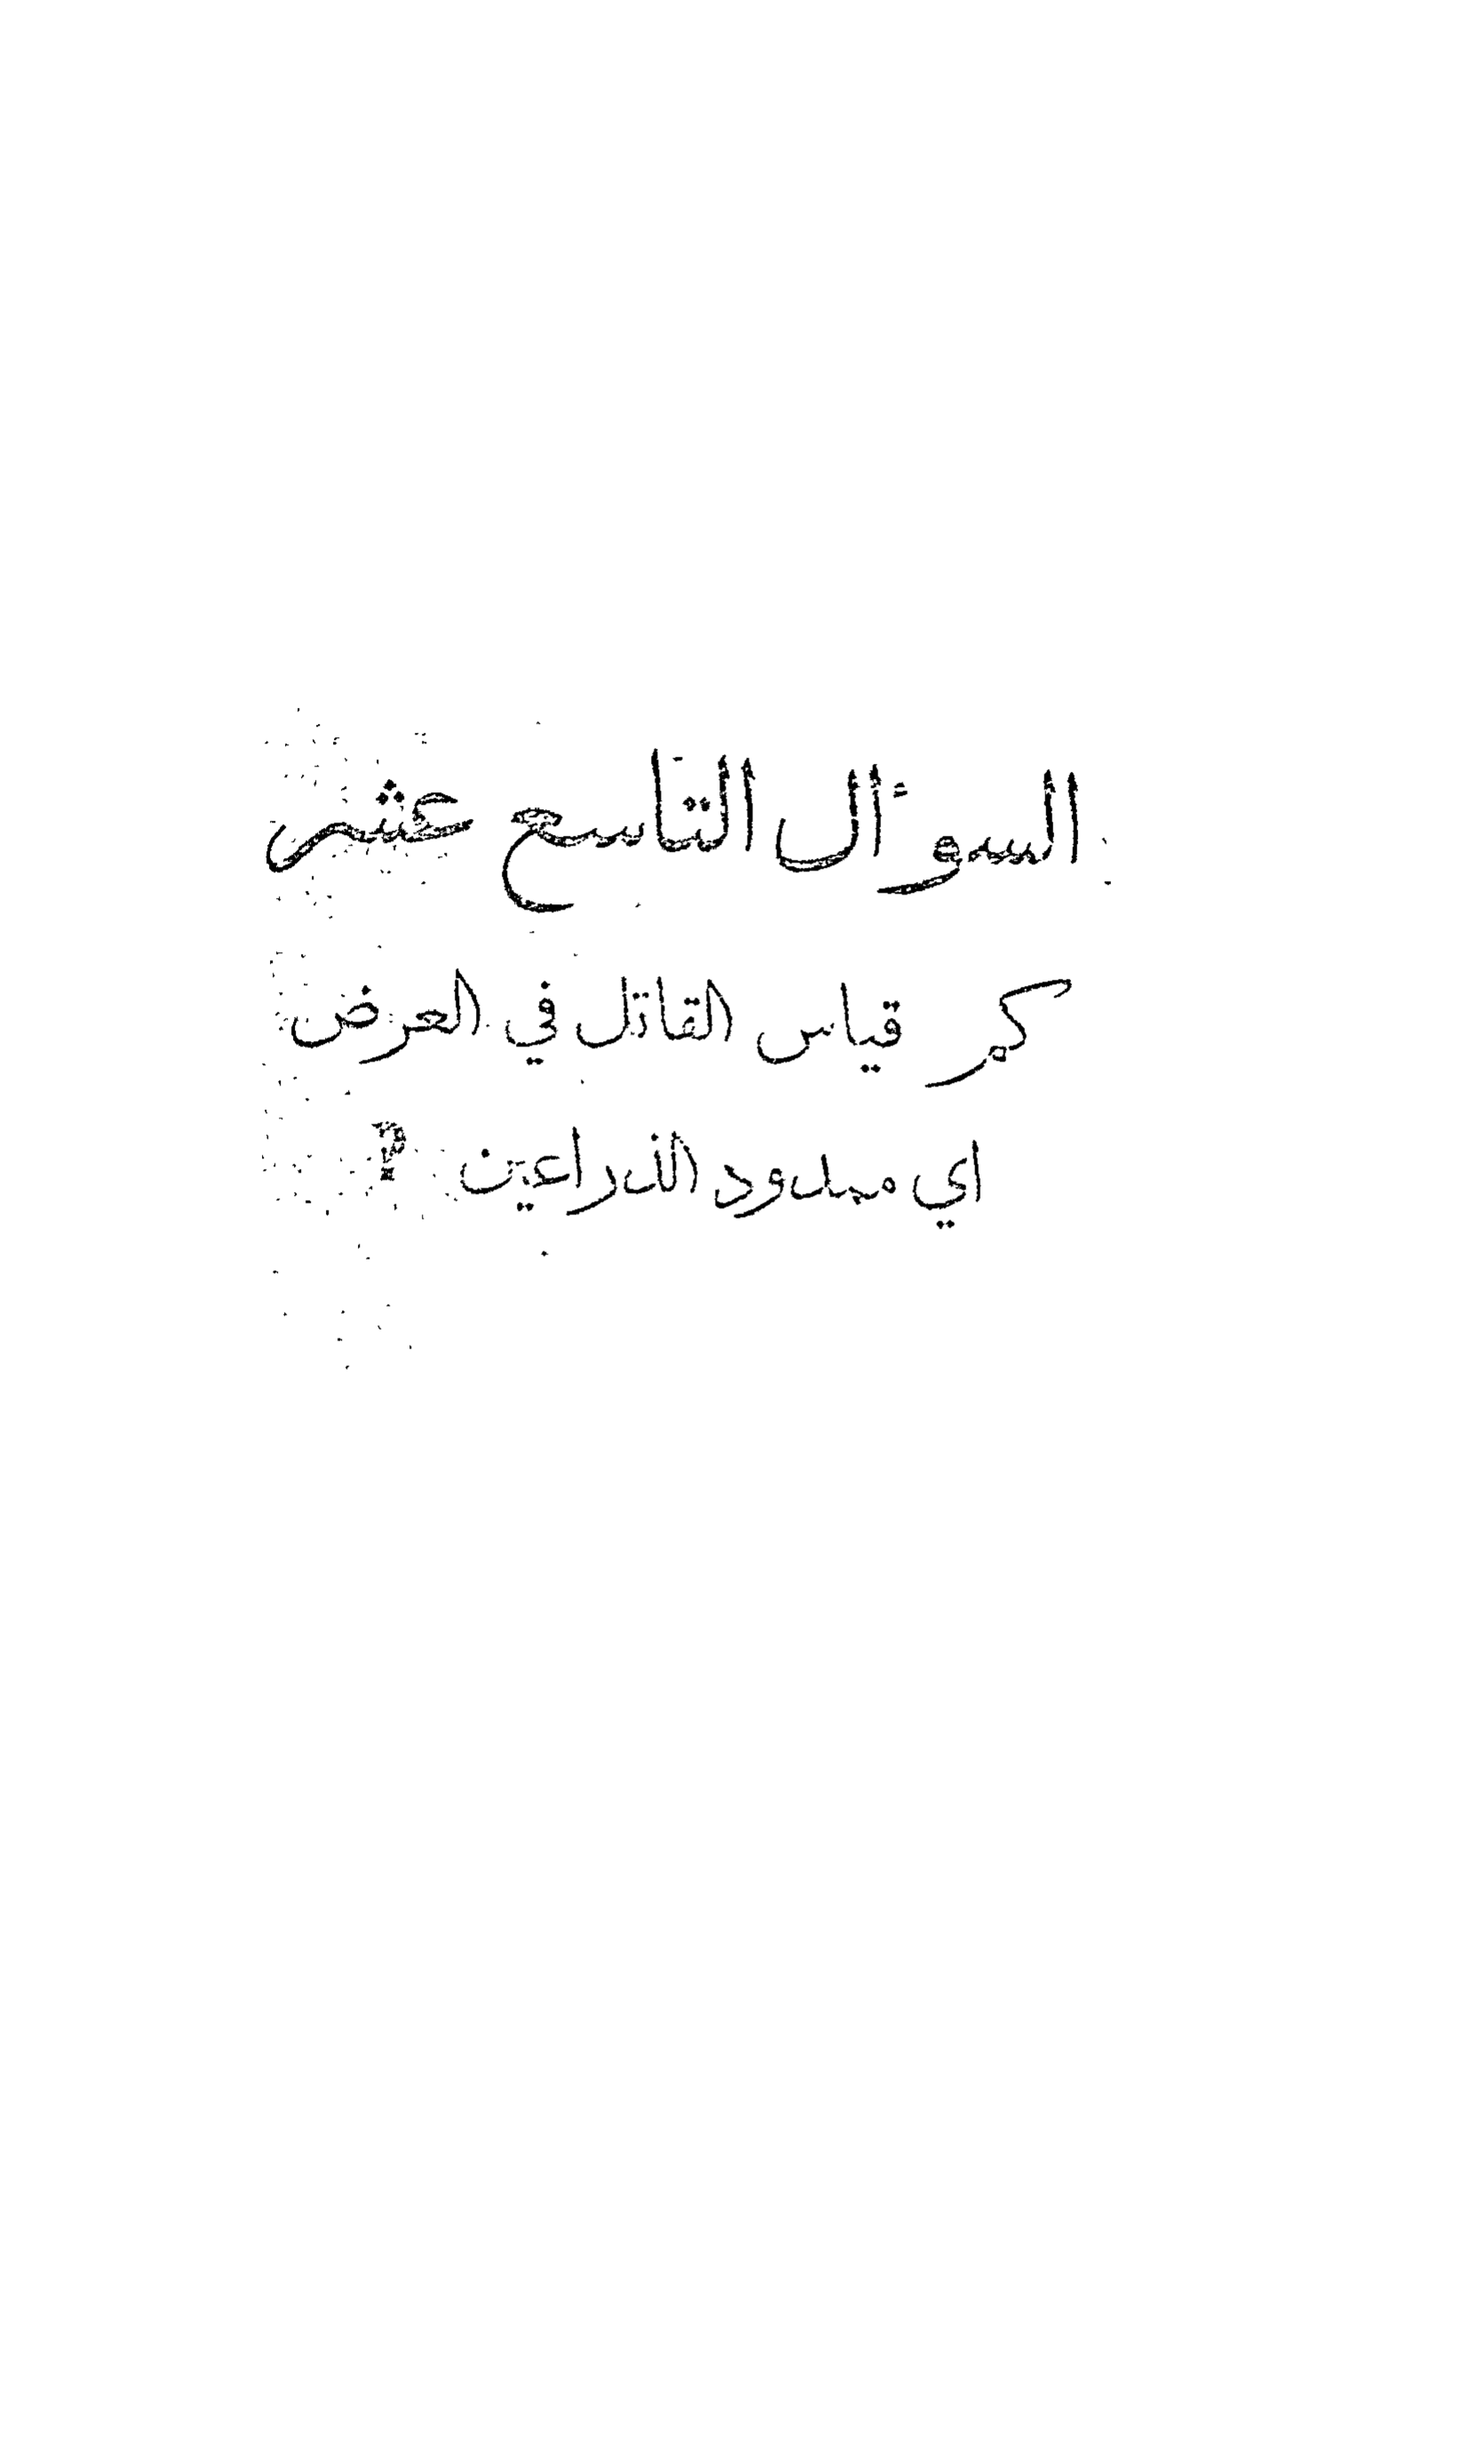 السوءال التاسع عشر
كم قياس القاتل في العرض
اي ممدود الذراعين ؟